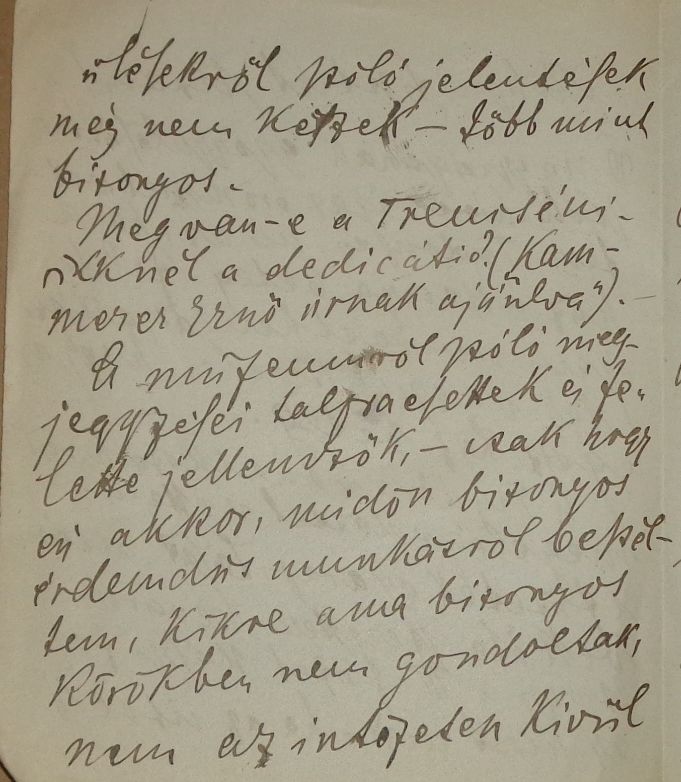 ülésekről szóló jelentések
még nem készek – több mint
bizonyos.
Megvan-e a Trencséni-
nél a dedicátió? (Kam-
merer Ernő úrnak ajánlva").
A múzeumról szóló meg-
jegyzései talpraesettek és fe-
lette jellemzők, – csak hogy
én akkor, midőn bizonyos
érdemdús munkásról beszél-
tem, kikre ama bizonyos
körökben nem gondoltak,
nem az intézeten kivül